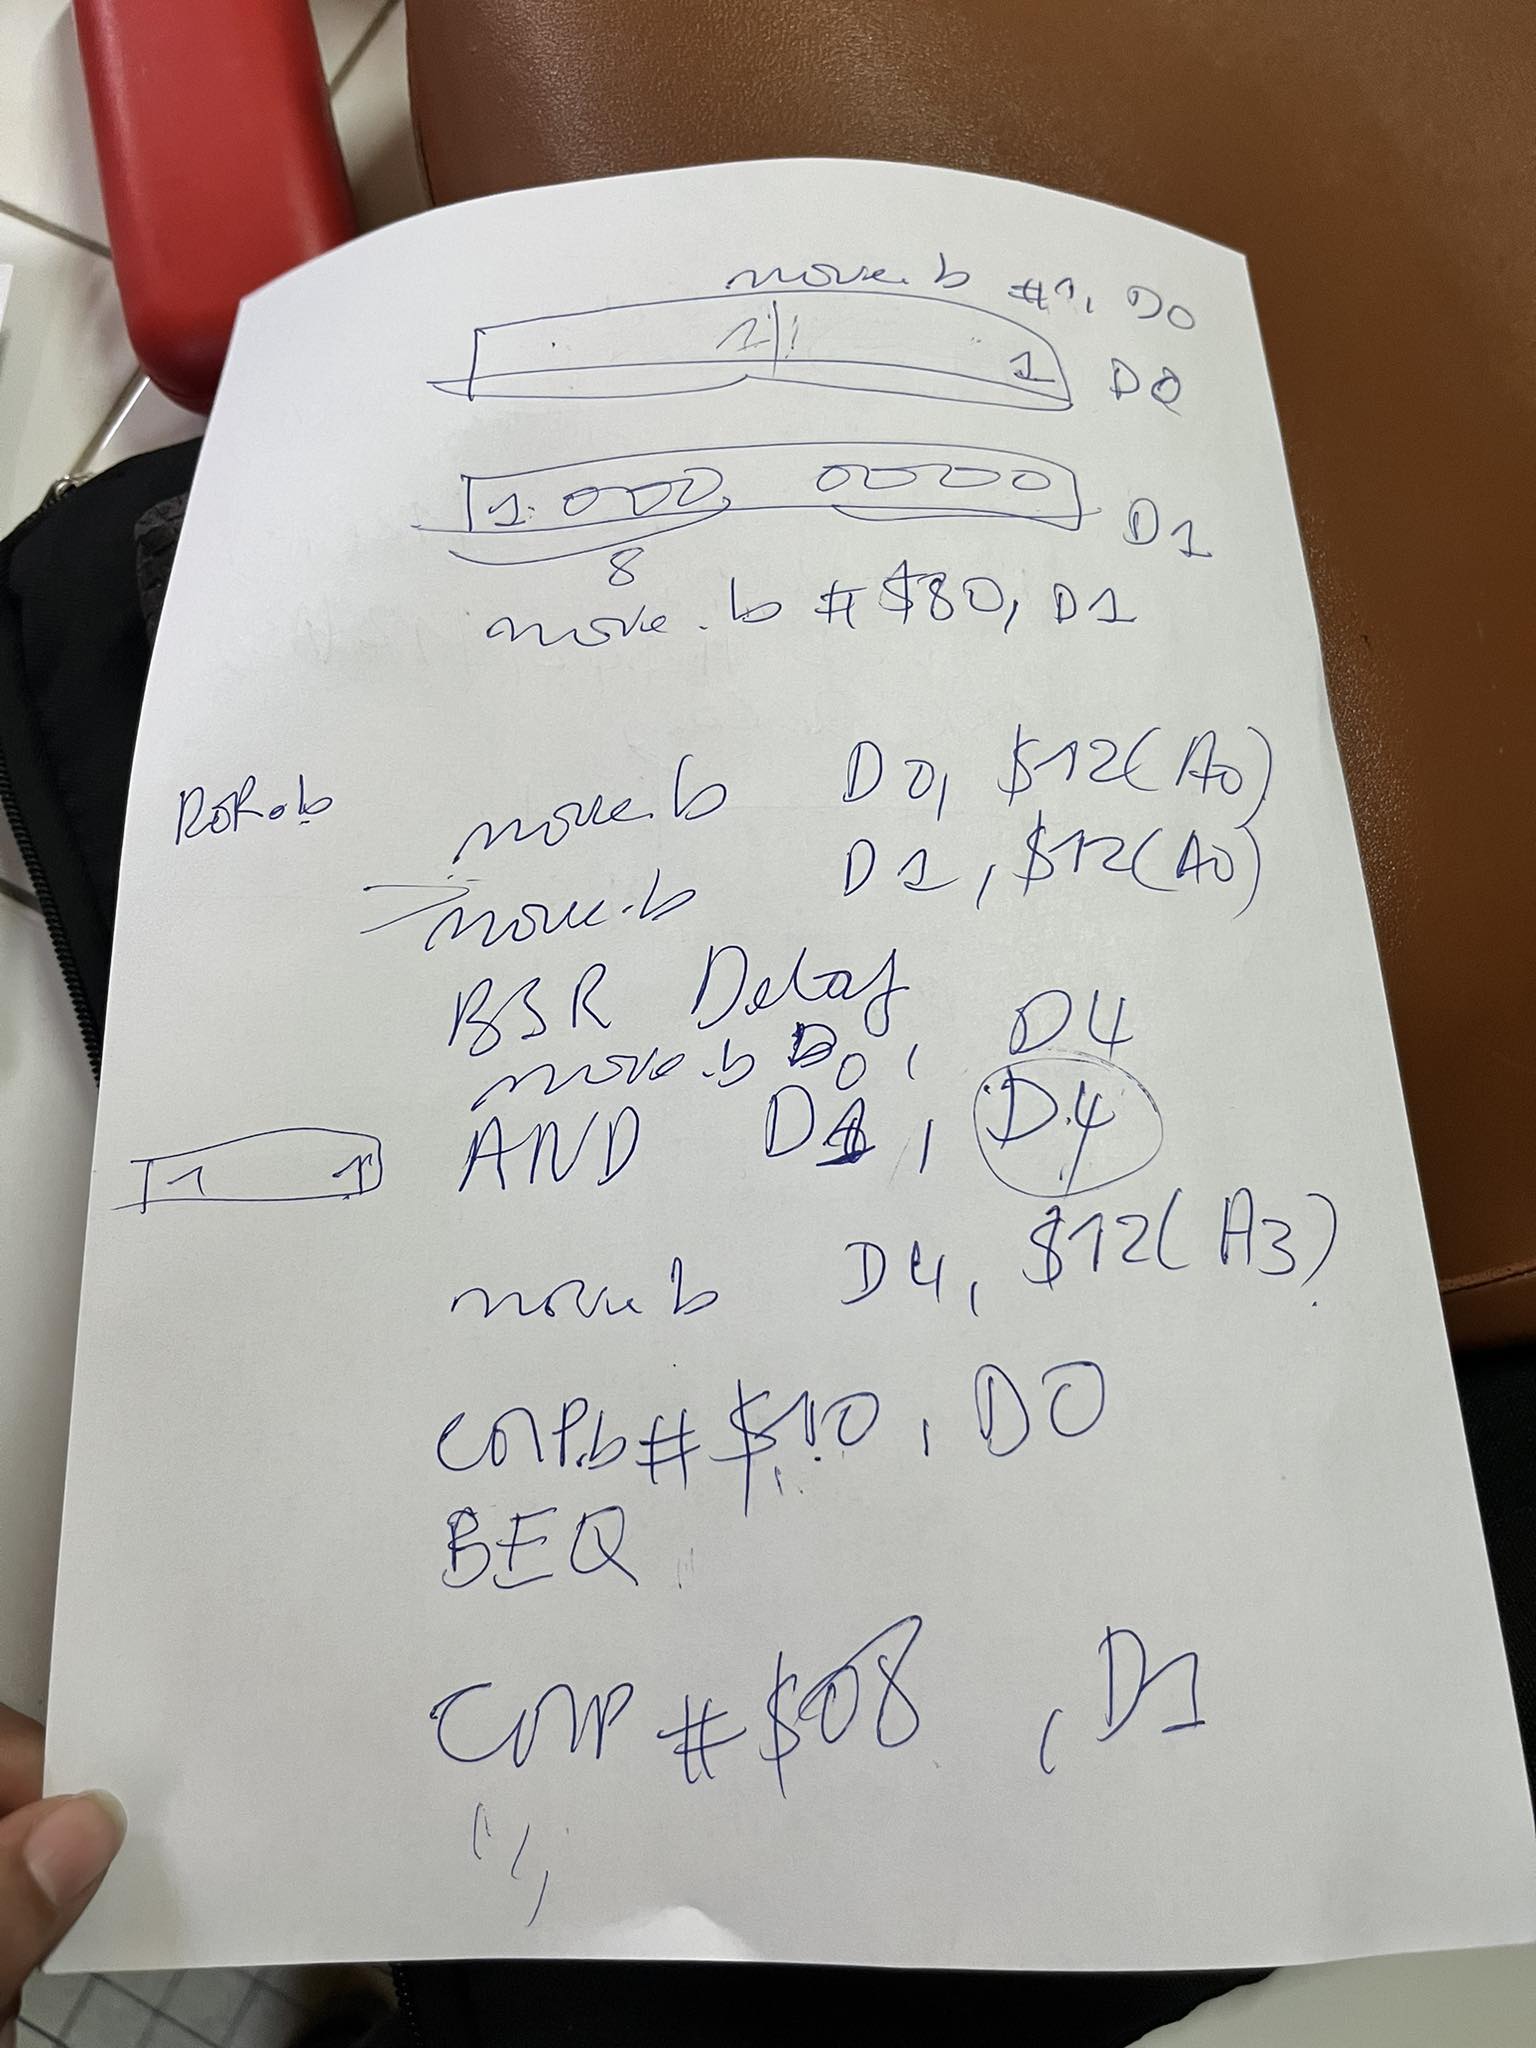 move.b #1, D0
1 1 D0
1 000 0000 D1
8
move.b #$80, D1
ROR.b
move.b D0, $12(A0)
move.b D1, $12(A0)
BSR Delay
move.b D0, D4
AND D1, D4
1 1
move.b D4, $12(A3)
CMP.b #$10, D0
BEQ
CMP #$08, D1